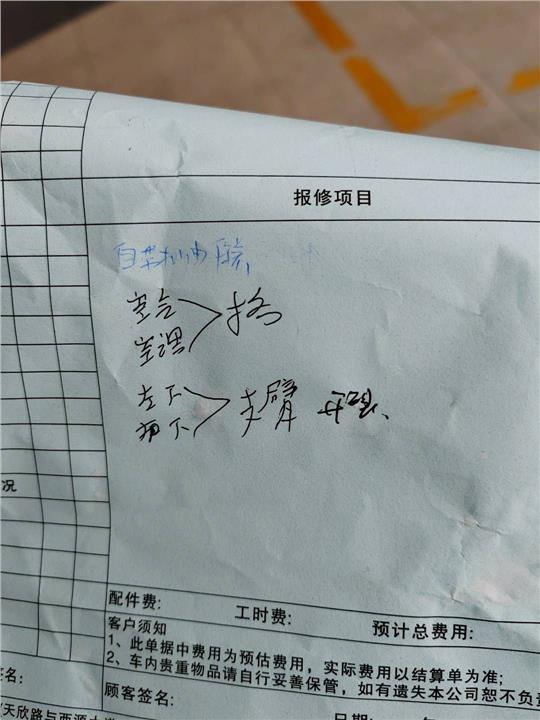 报修项目
自带机油
空
空调
左下
支臂
况
配件费: 工时费: 预计总费用:
客户须知
1、此单据中费用为预估费用，实际费用以结算单为准;
2、车内贵重物品请自行妥善保管，如有遗失本公司恕不负责
签名: 顾客签名: 日期:
天欣路与西源大道